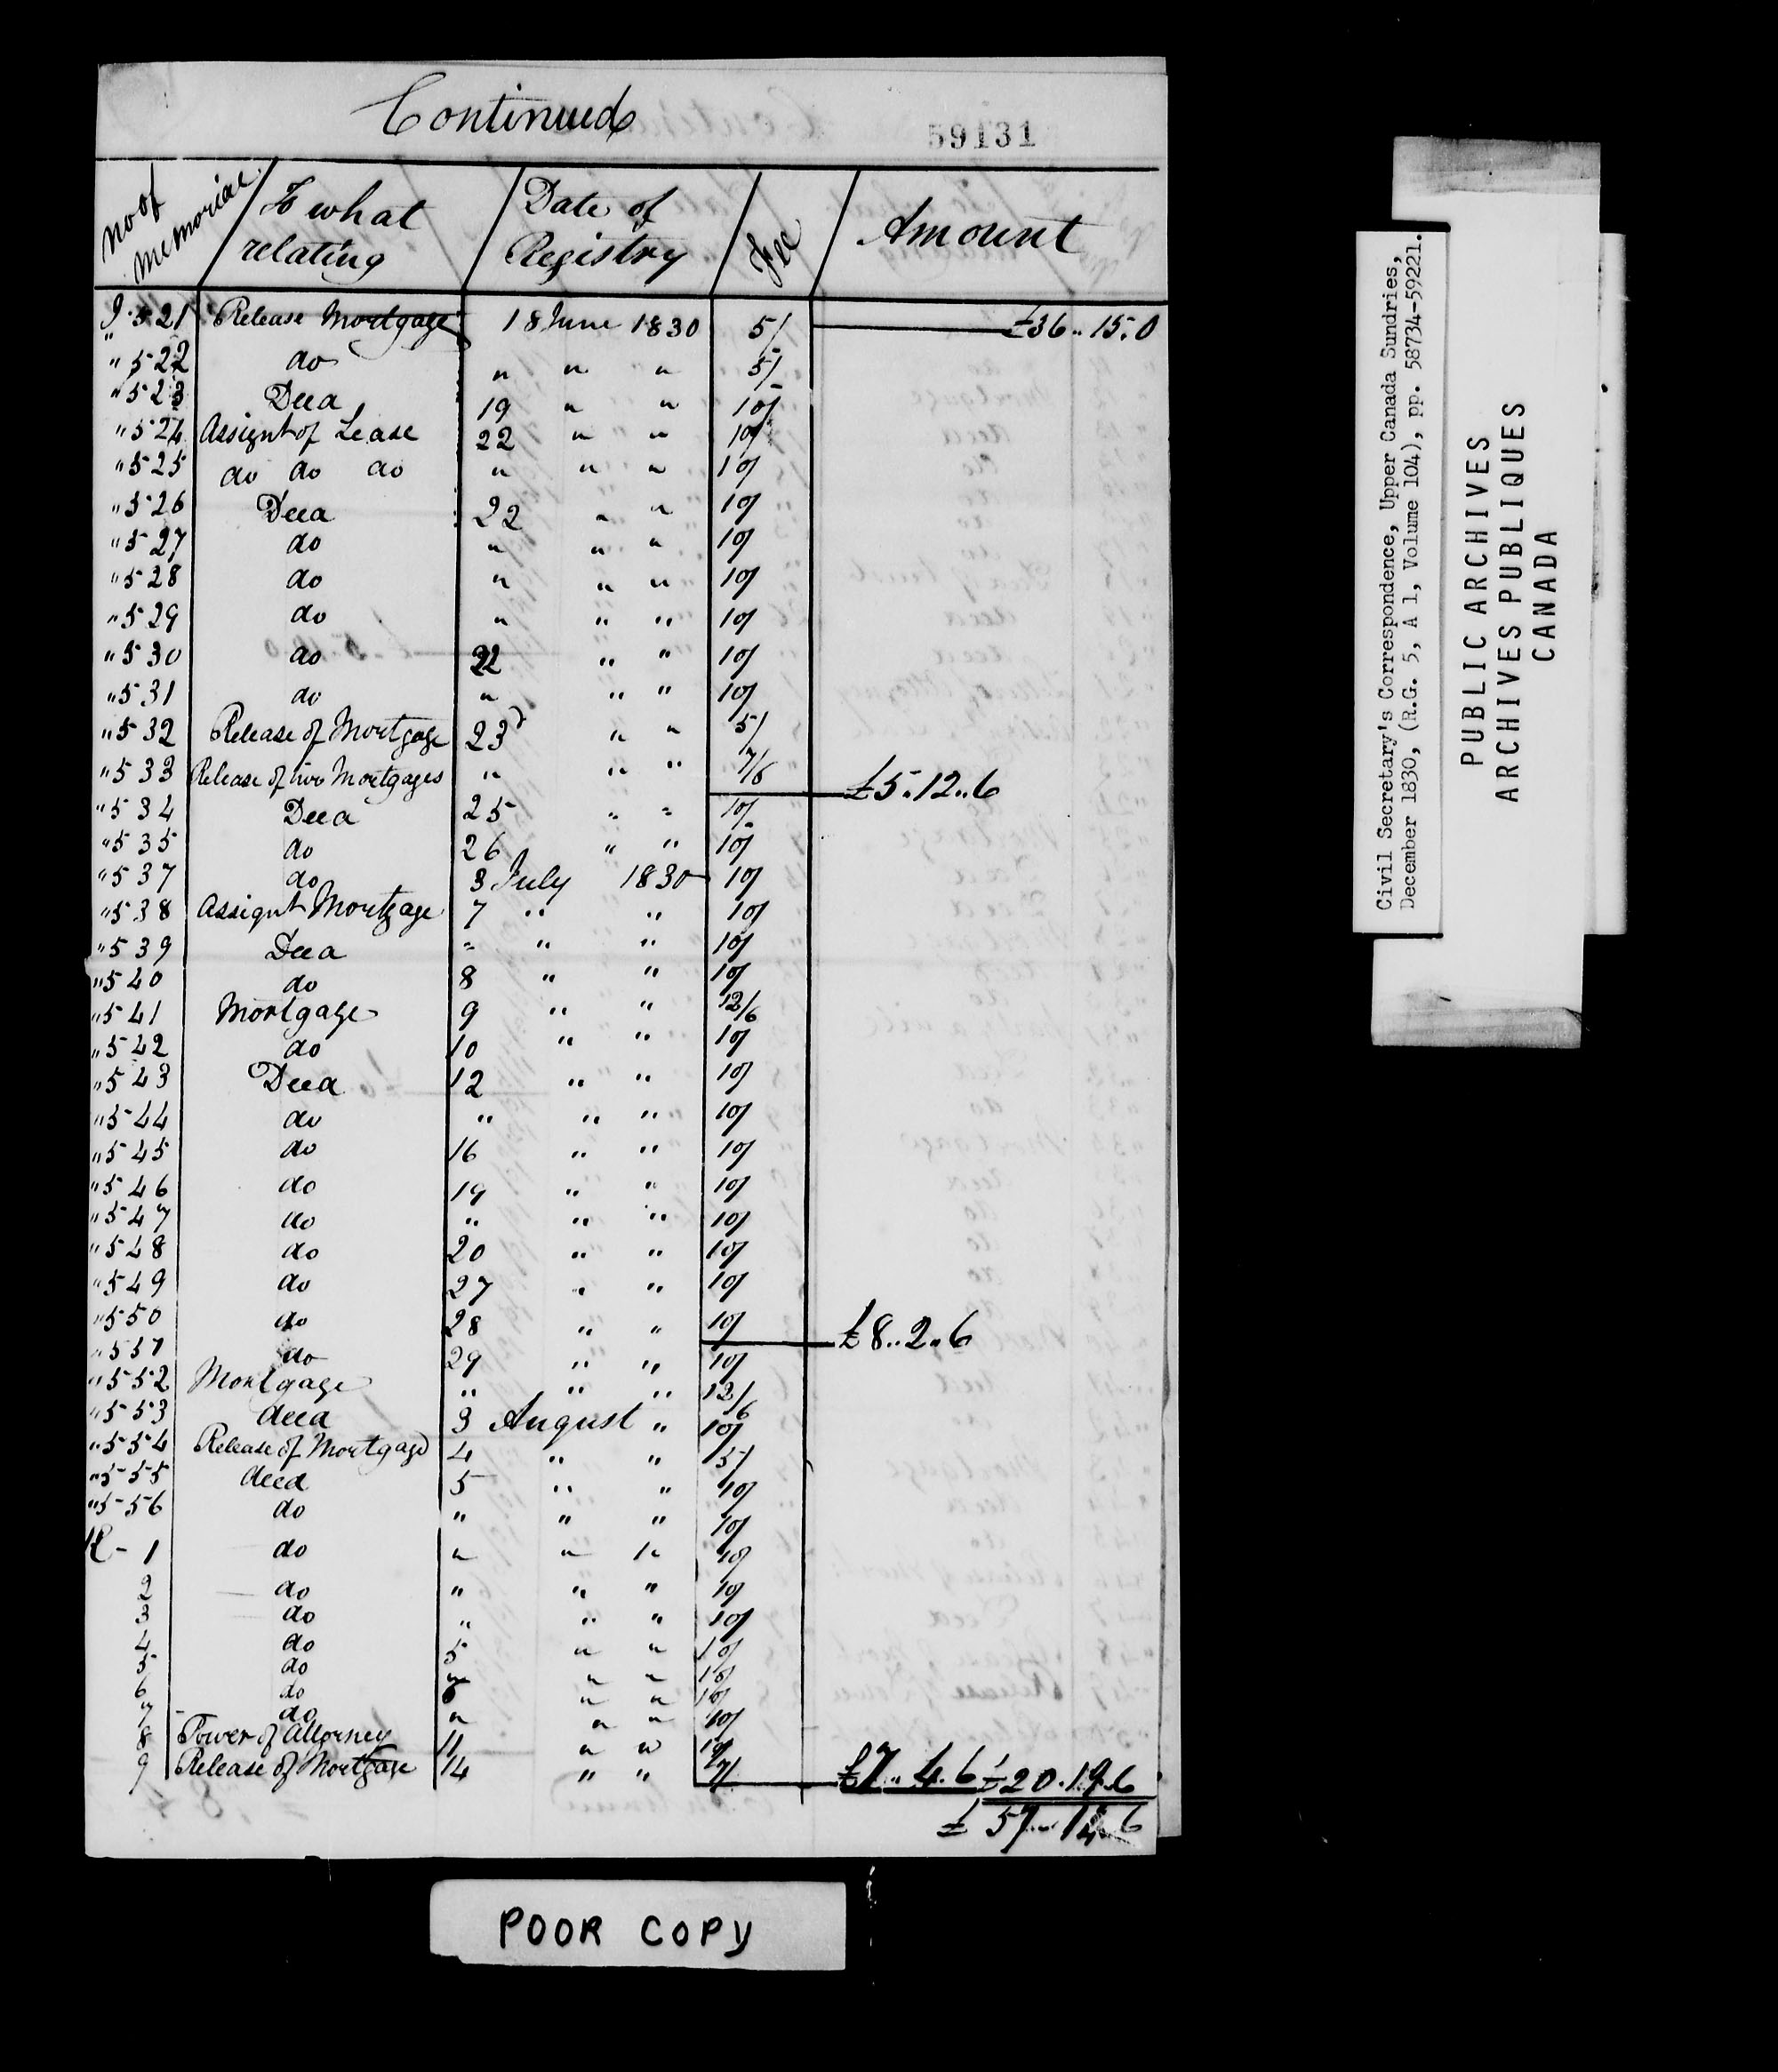 Continued
59131
No of Memorial To what relating Date of Registry Fee Amount
J. 521 Release Mortgage 18 June 1830 5/ £36..15.0
" 522 do " " " 5/
" 523 Deed 19 " " 10/
" 524 Assignt of Lease 22 " " 10/
" 525 do do do " " " 10/
" 526 Deed 22 " " 10/
" 527 do " " " 10/
" 528 do " " " 10/
" 529 do " " " 10/
" 530 do 22 " " 10/
" 531 do " " " 10/
" 532 Release of Mortgage 23 " " 5/
" 533 Release of two Mortgages " " " 7/6 £5..12..6
" 534 Deed 25 " " 10/
" 535 do 26 " " 10/
" 537 do 3 July 1830 10/
" 538 Assignt Mortgage 7 " " 10/
" 539 Deed " " " 10/
" 540 do 8 " " 10/
" 541 Mortgage 9 " " 12/6
" 542 do 10 " " 10/
" 543 Deed 12 " " 10/
" 544 do " " " 10/
" 545 do 16 " " 10/
" 546 do 19 " " 10/
" 547 do " " " 10/
" 548 do 20 " " 10/
" 549 do 27 " " 10/
" 550 do 28 " " 10/ £8..2..6
" 551 do 29 " " 10/
" 552 Mortgage " " " 12/6
" 553 deed 3 August " 10/
" 554 Release of Mortgage 4 " " 5/
" 555 deed 5 " " 10/
" 556 do " " " 10/
K - 1 do " " " 10/
2 do " " " 10/
3 do " " " 10/
4 do 5 " " 10/
5 do " " 10/
6 do 6 " " 10/
7 do " " " 10/
8 Power of Attorney 11 " " 10/
9 Release of Mortgage 14 " " £7..4.6 £20.19.6
£ 57..14..6
POOR COPY
Civil Secretary's Correspondence, Upper Canada Sundries,
December 1830, (R.G. 5, A 1, Volume 104), pp. 58734-59221.
PUBLIC ARCHIVES
ARCHIVES PUBLIQUES
CANADA